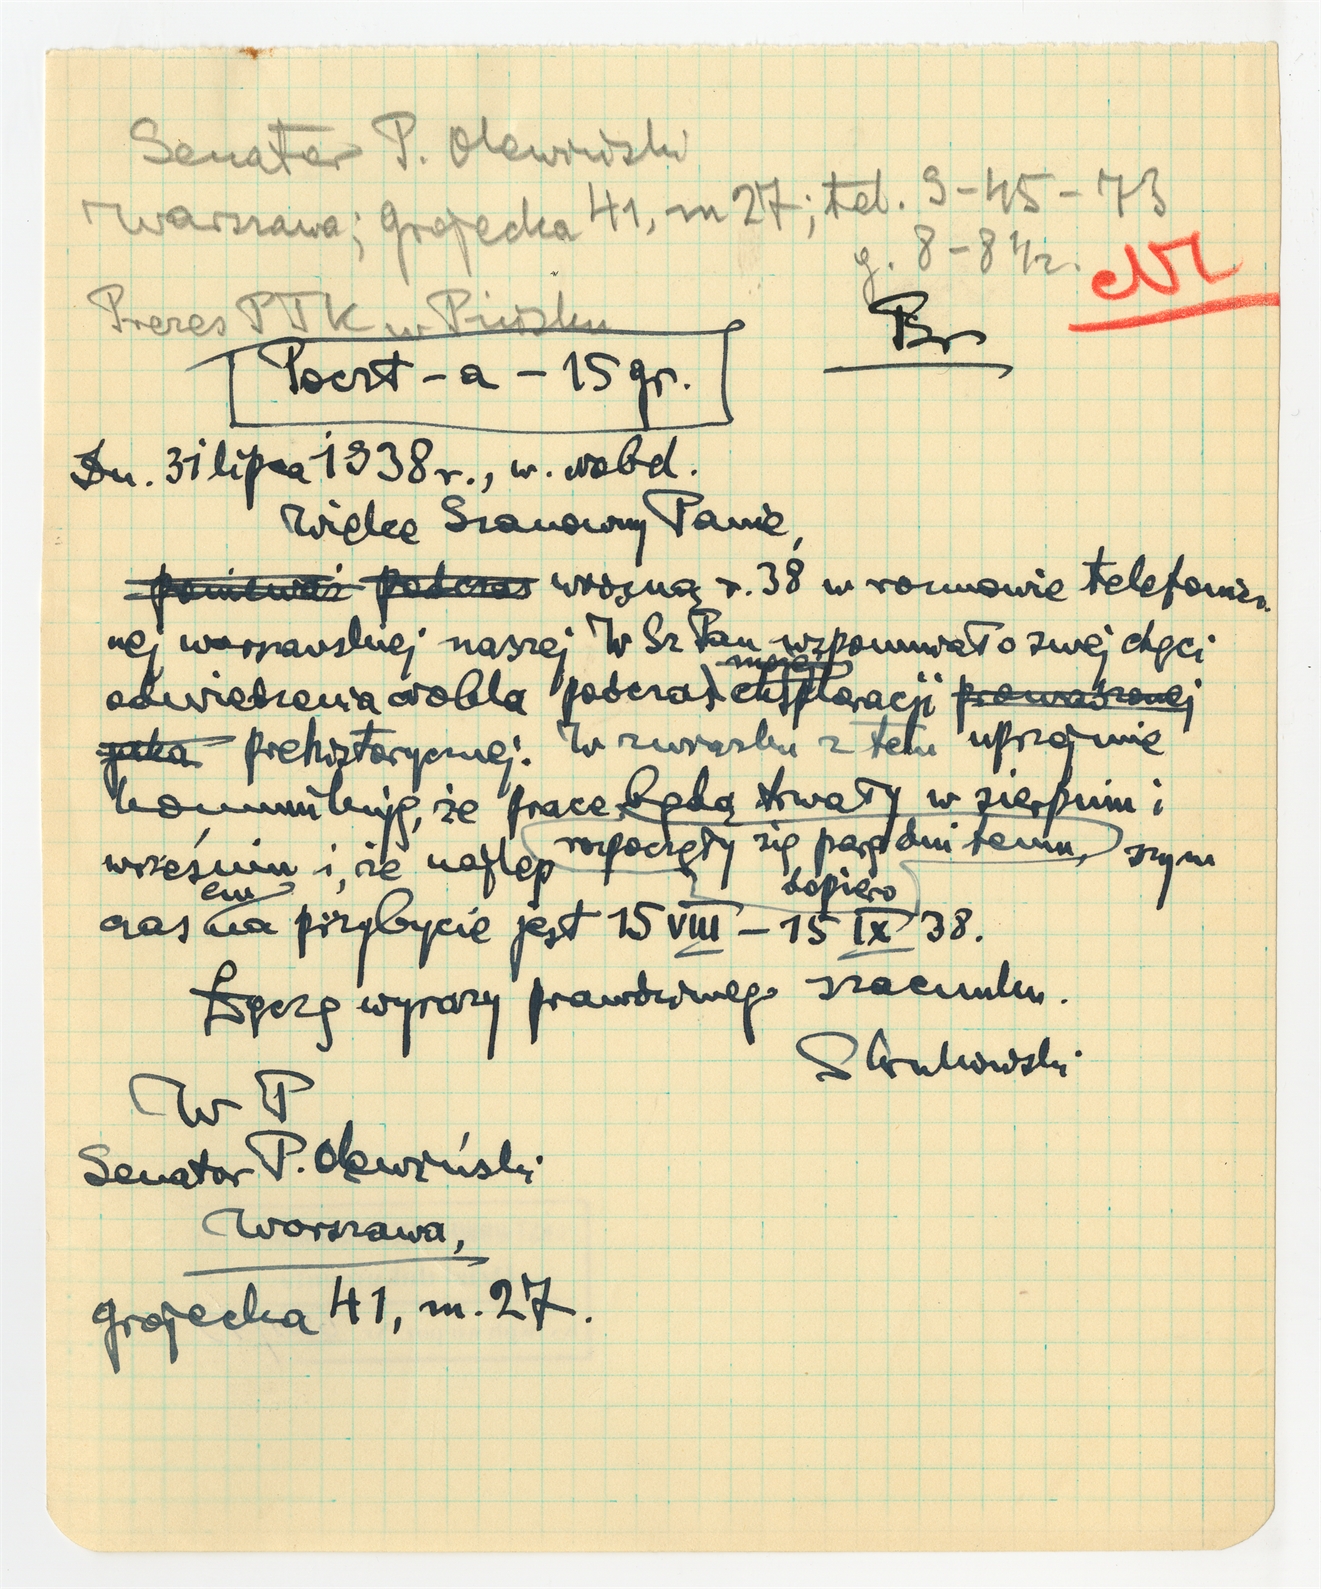 Senator P. Olewiński
Warszawa; Grójecka 41, m 27; tel. 9-45-73
g. 8-8 1/2.
Prezes PTK w Pińsku
Br
Poczt-a-15 gr.
Dn. 31 lipca 1938 r., w.
Wielce Szanowny Panie,
ponieważ podczas wiosną r. 38 w rozmowie telefonicz-
nej warszawskiej naszej W Sz Pan wspominał o swej chęci
mojej
odwiedzenia podczas eksploracji prowadzonej
prehistorycznej. W związku z tem uprzejmie
komunikuję, że prace będą trwały w sierpniu i
rozpoczęły się parę dni temu,
wrześniu i, że najlep szym
em dopiero
czas na przybycie jest 15 VIII - 15 IX 38.
Łączę wyrazy prawdziwego szacunku.
W P
Senator P. Olewiński
Warszawa,
Grójecka 41, m. 27.